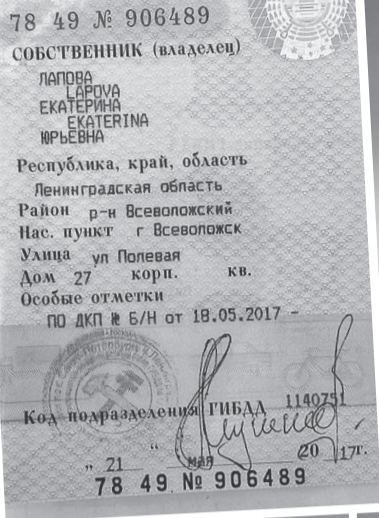 78 49 № 906489
СОБСТВЕННИК (владелец)
ЛАПОВА
LAPOVA
ЕКАТЕРИНА
EKATERINA
ЮРЬЕВНА
Республика, край, область
Ленинградская область
Район р-н Всеволожский
Нас. пункт г Всеволожск
Улица ул Полевая
Дом 27 корп. кв.
Особые отметки
ПО ДКП № Б/Н от 18.05.2017 -
Код подразделения ГИБДД 1140751
„ 21 “ мая 2017г.
78 49 № 906489